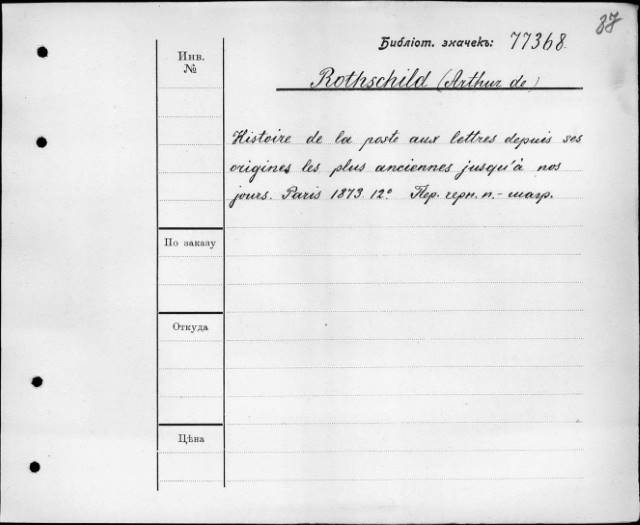 37
Библіот. значекъ: 77368.
Инв.
№
Rothschild (Arthur de)
Histoire de la poste aux lettres depuis ses
origines les plus anciennes jusqu'à nos
jours. Paris 1873. 12º Пер. черн. п.-шагр.
По заказу
Откуда
Цѣна